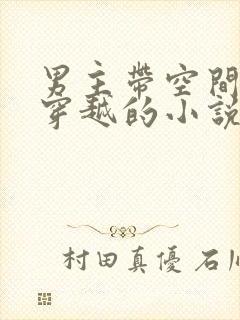 男主帶空間
穿越的小說
村田真優 石川